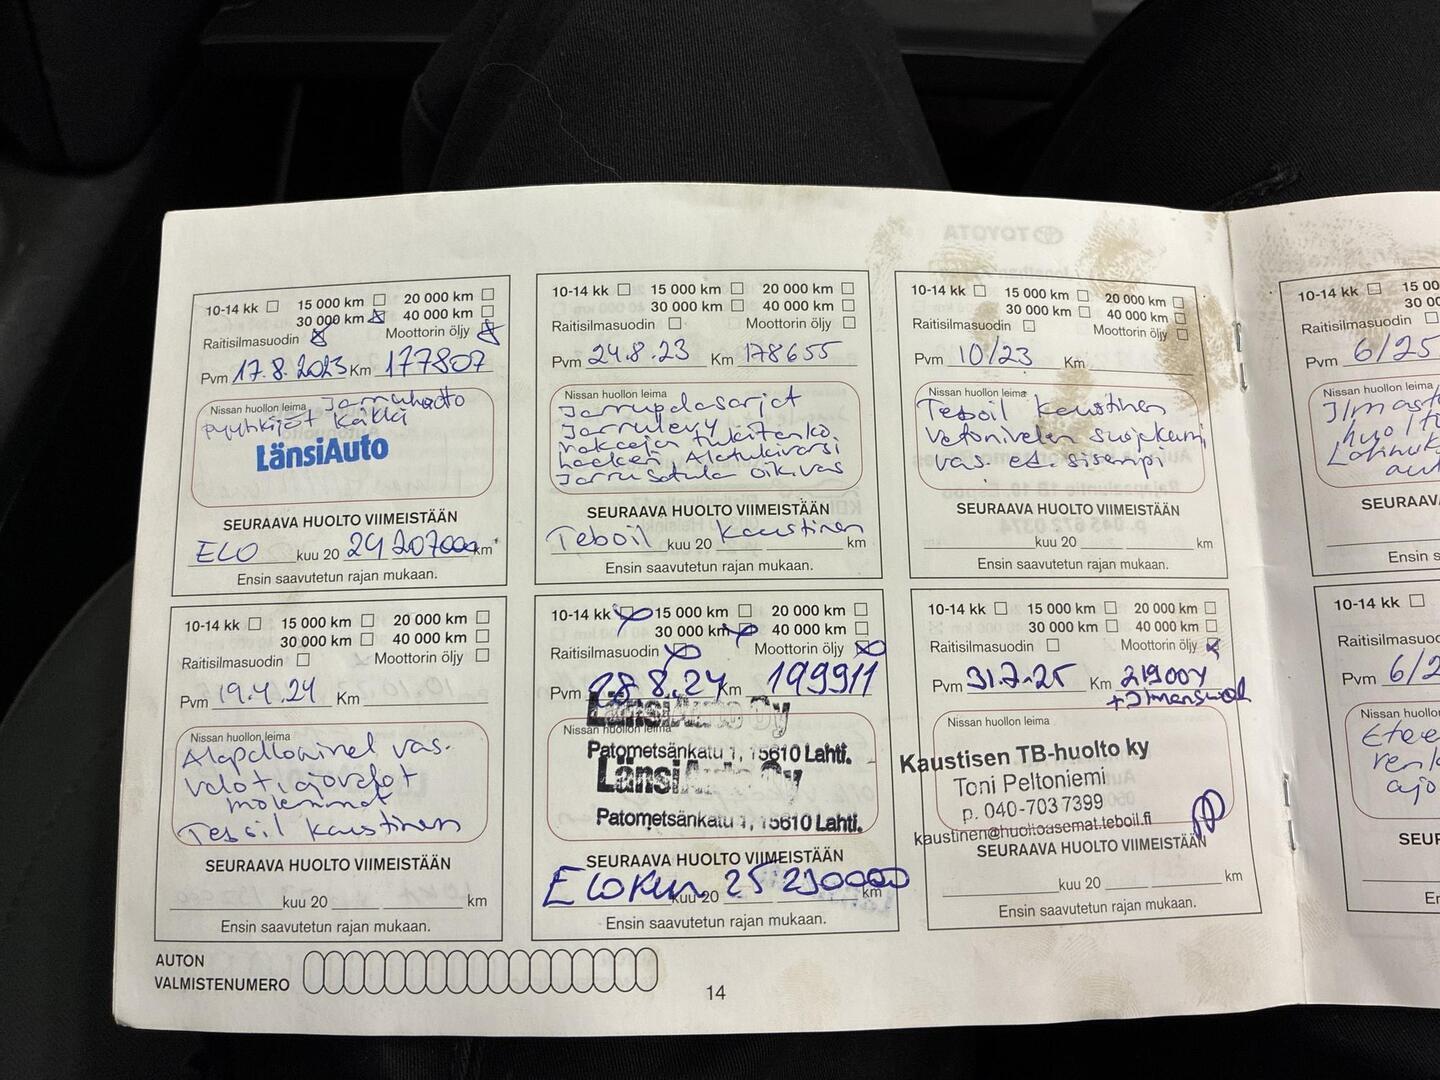 10-14 kk 15 000 km 20 000 km
30 000 km 40 000 km
Raitisilmasuodin Moottorin öljy
Pvm 17.8.2023 Km 177807
Nissan huollon leima Jarruhuolto
pyyhkijät
LänsiAuto
SEURAAVA HUOLTO VIIMEISTÄÄN
ELO kuu 20 24 207000 km
Ensin saavutetun rajan mukaan.
10-14 kk 15 000 km 20 000 km
30 000 km 40 000 km
Raitisilmasuodin Moottorin öljy
Pvm 24.8.23 Km 178655
Nissan huollon leima
Jarrupalasarjat
Jarrulevy
Alatukivarsi
Jarrusatula oik.vas
SEURAAVA HUOLTO VIIMEISTÄÄN
Teboil Kaustinen
kuu 20 km
Ensin saavutetun rajan mukaan.
10-14 kk 15 000 km 20 000 km
30 000 km 40 000 km
Raitisilmasuodin Moottorin öljy
Pvm 10/23 Km
Nissan huollon leima
Teboil Kaustinen
Vetonivelen suojakumi
vas. et. sisempi
SEURAAVA HUOLTO VIIMEISTÄÄN
kuu 20 km
Ensin saavutetun rajan mukaan.
10-14 kk 15 000 km 20 000 km
30 000 km 40 000 km
Raitisilmasuodin Moottorin öljy
Pvm 19.4.24 Km
Nissan huollon leima
Alapallonivel vas.
molemmat
Teboil Kaustinen
SEURAAVA HUOLTO VIIMEISTÄÄN
kuu 20 km
Ensin saavutetun rajan mukaan.
10-14 kk 15 000 km 20 000 km
30 000 km 40 000 km
Raitisilmasuodin Moottorin öljy
Pvm 28.8.24 Km 199911
LänsiAuto Oy
Nissan huollon leima
Patometsänkatu 1, 15610 Lahti.
LänsiAuto Oy
Patometsänkatu 1, 15610 Lahti.
SEURAAVA HUOLTO VIIMEISTÄÄN
ELOKUU kuu 20 25 230000 km
Ensin saavutetun rajan mukaan.
10-14 kk 15 000 km 20 000 km
30 000 km 40 000 km
Raitisilmasuodin Moottorin öljy
Pvm 31.7.25 Km 219004
Nissan huollon leima
Kaustisen TB-huolto ky
Toni Peltoniemi
p. 040-703 7399
kaustinen@huoltoasemat.teboil.fi
SEURAAVA HUOLTO VIIMEISTÄÄN
kuu 20 km
Ensin saavutetun rajan mukaan.
10-14 kk
Raitisilmasuodin
Pvm 6/25
Nissan huollon leima
SEURAAVA
Ensin
10-14 kk
Pvm
Nissan huollon
Pvm
AUTON
VALMISTENUMERO
14